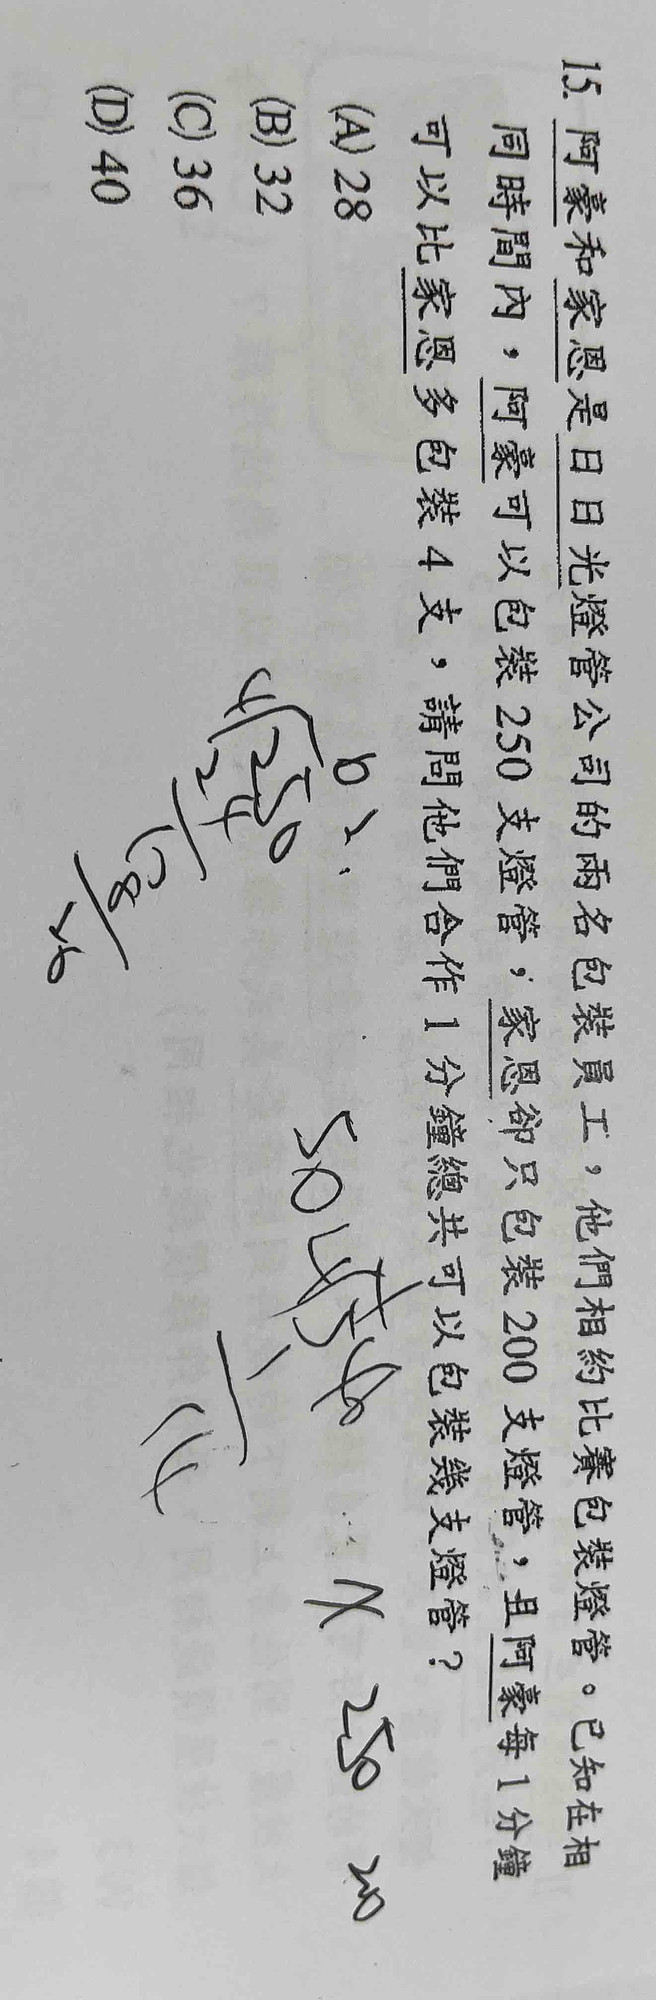 15. 阿豪和家恩是日日光燈管公司的兩名包裝員工，他們相約比賽包裝燈管。已知在相
同時間內，阿豪可以包裝 250 支燈管，家恩卻只包裝 200 支燈管，且阿豪每 1 分鐘
可以比家恩多包裝 4 支，請問他們合作 1 分鐘總共可以包裝幾支燈管？
(A) 28
(B) 32
(C) 36
(D) 40
250
50
250
20